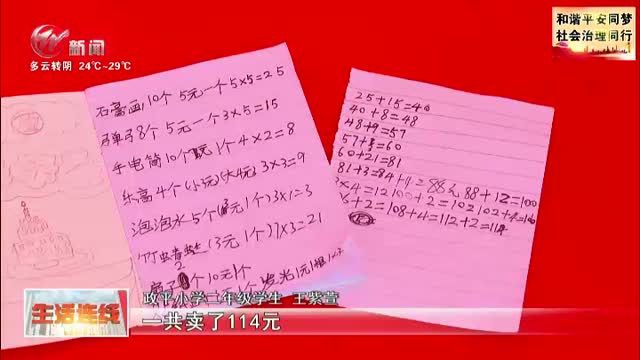 新闻
多云转阴 24℃~29℃
和谐平安同梦
社会治理同行
石膏画,10个 5元一个 5×5=25
弹弓8个 5元一个 3×5=15
手电筒10个 1个 4×2=8
乐高4个 3×3=9
泡泡水5个 1个)3×1=3
竹蜻蜓(3元1个)7×3=21
个10元1个
25+15=40
40+8=48
48+9=57
57+3=60
60+21=81
81+3=84+4=88元 88+12=100
×4=12 100+2=102 102+4=106
6+2=108+4=112+2=114
生活连线
政平小学二年级学生 王紫萱
一共卖了114元